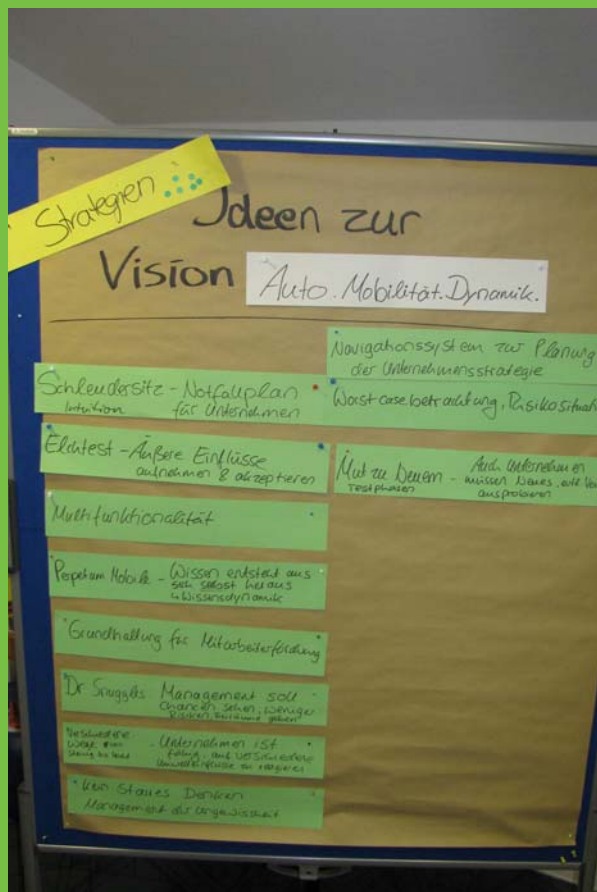 Strategien
Ideen zur
Vision
Auto.Mobilität.Dynamik.
Navigationssystem zur Planung
der Unternehmensstrategie
Schleudersitz - Notfallplan
Intuition für Unternehmen
Worst case betrachtung, Risikosituat
Elchtest - Äußere Einflüsse
aufnehmen & akzeptieren
Mut zu Neuem - Auch Unternehmen
Testphasen müssen Neues, evtl
ausprobieren
Multifunktionalität
Perpetum Mobile - Wissen entsteht aus
sich selbst heraus
Wissensdynamik
Grundhaltung für Mitarbeiterförderung
Dr Snuggles Management soll
Chancen sehen, weniger
Risiken
Verschiedene
Wege - Unternehmen ist
fähig, auf verschiedene
Umwelteinflüsse zu reagieren
Kein Starres Denken
Management der Ungewissheit